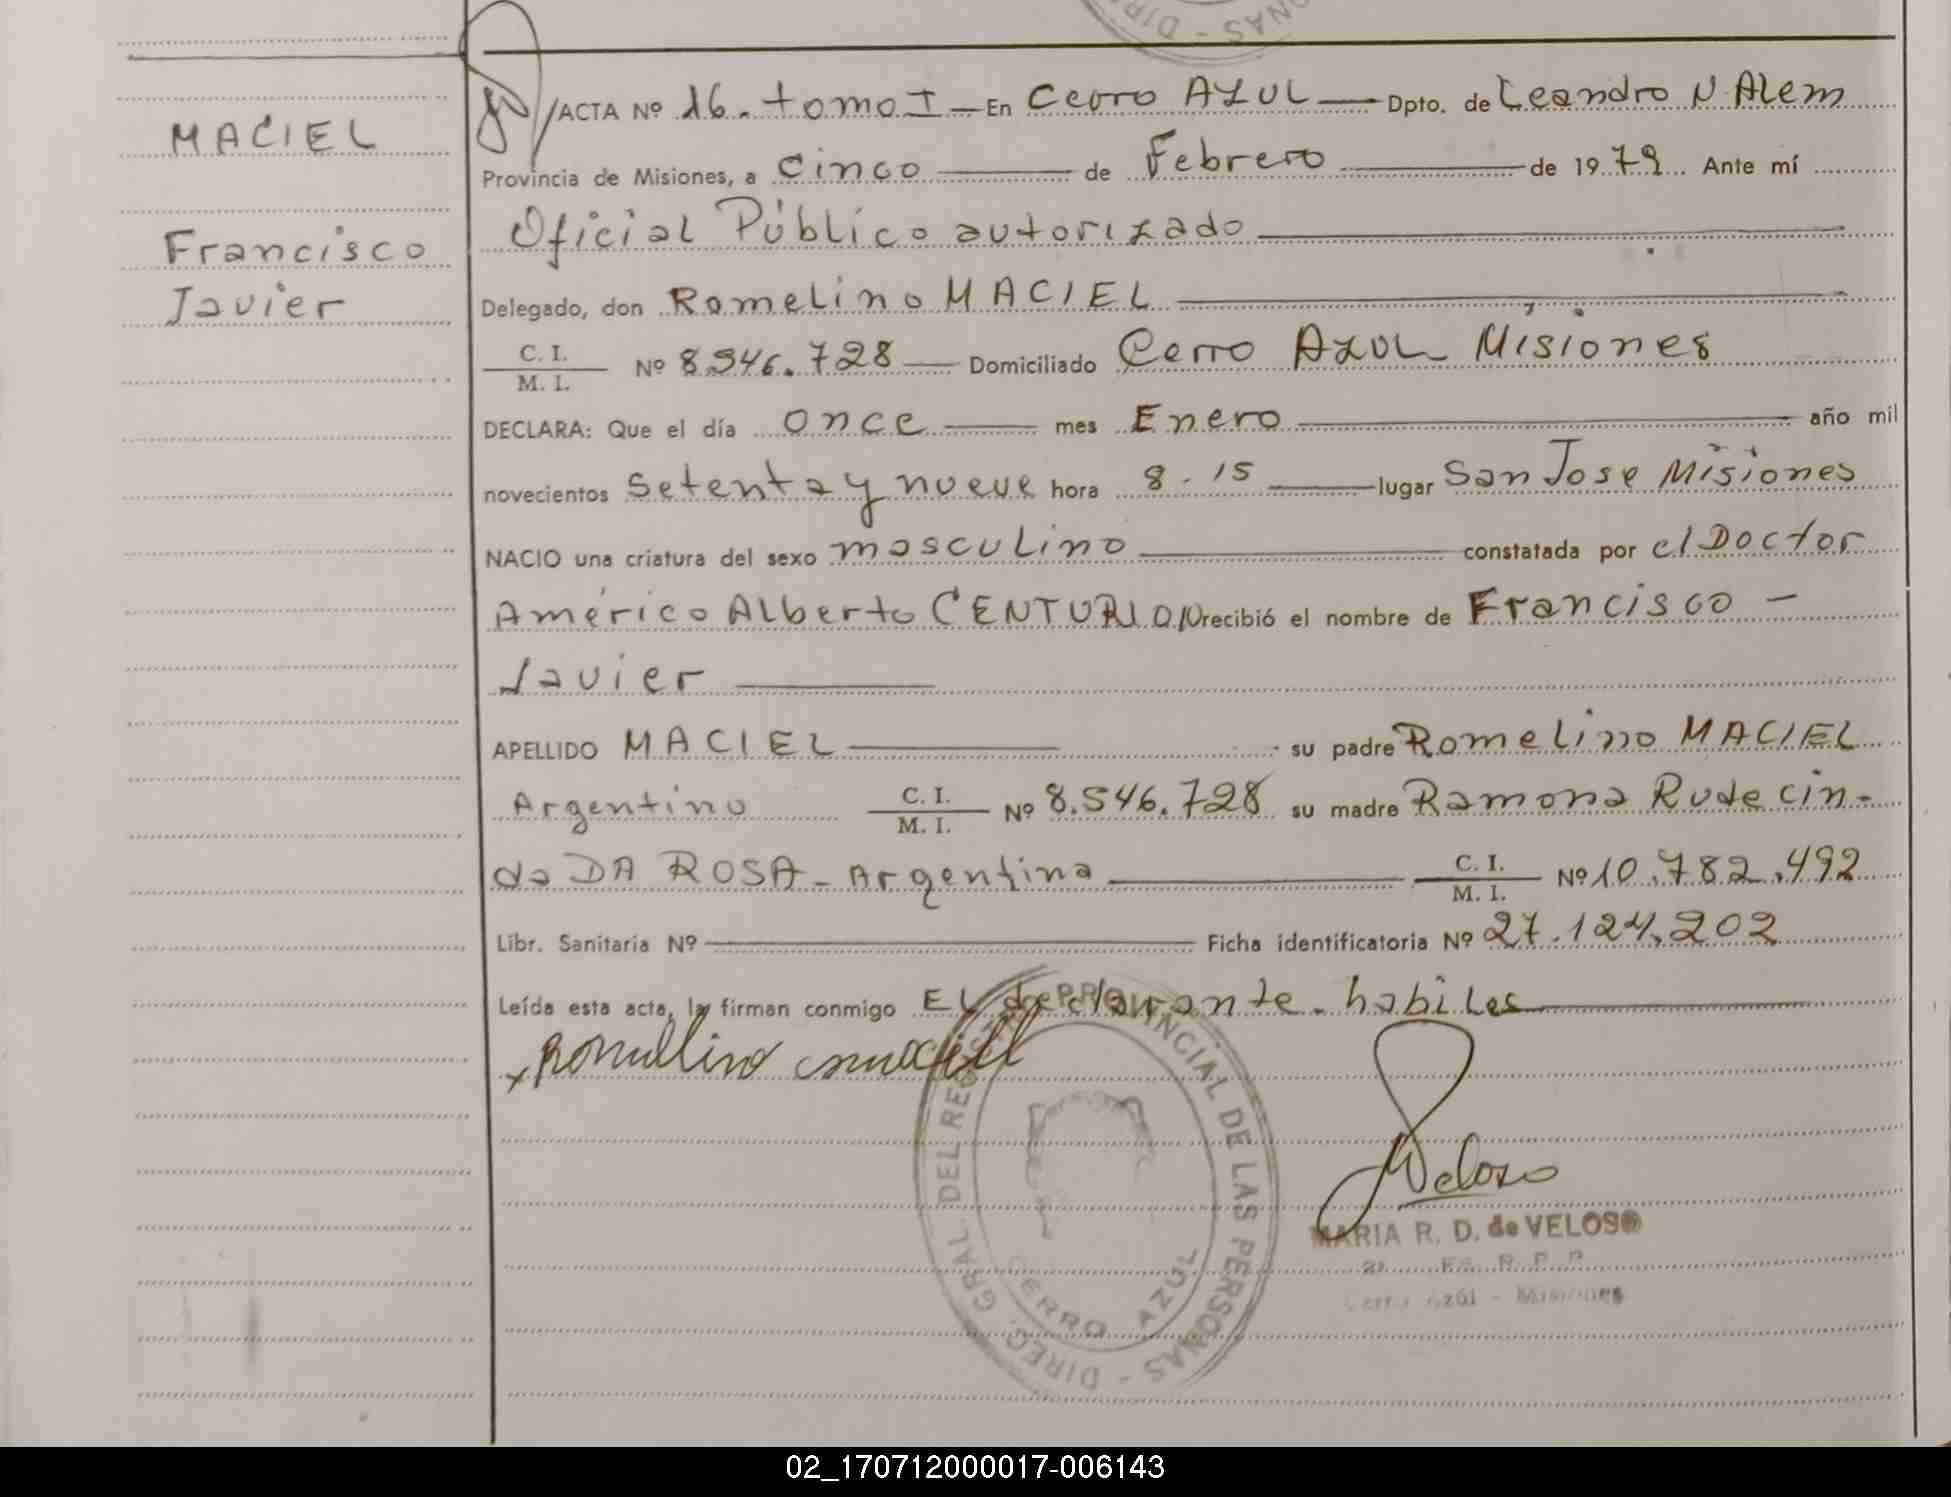 DIREC - SONAS
MACIEL
Francisco
Javier
ACTA Nº 16. tomo I — En Cerro AZUL — Dpto. de Leandro N. Alem
Provincia de Misiones, a Cinco — de Febrero — de 1979. Ante mí
Oficial Público autorizado
Delegado, don Romelino MACIEL
C. I. / M. I. Nº 8.546.728 — Domiciliado Cerro AZUL Misiones
DECLARA: Que el día once — mes Enero — año mil
novecientos setenta y nueve hora 8.15 — lugar San Jose Misiones
NACIO una criatura del sexo masculino — constatada por el Doctor
Américo Alberto CENTURIÓN recibió el nombre de Francisco —
Javier —
APELLIDO MACIEL — su padre Romelino MACIEL
Argentino C. I. / M. I. Nº 8.546.728 su madre Ramona Rudecin-
da DA ROSA - Argentina — C. I. / M. I. Nº 10.782.492
Libr. Sanitaria Nº — Ficha identificatoria Nº 27.124.202
Leída esta acta, la firman conmigo El declarante - habiles
x Romelino Maciel
Veloso
MARIA R. D. de VELOSO
Cerro Azul - Misiones
DIREC. GRAL. DEL REGISTRO PROVINCIAL DE LAS PERSONAS -
CERRO AZUL
02_170712000017-006143